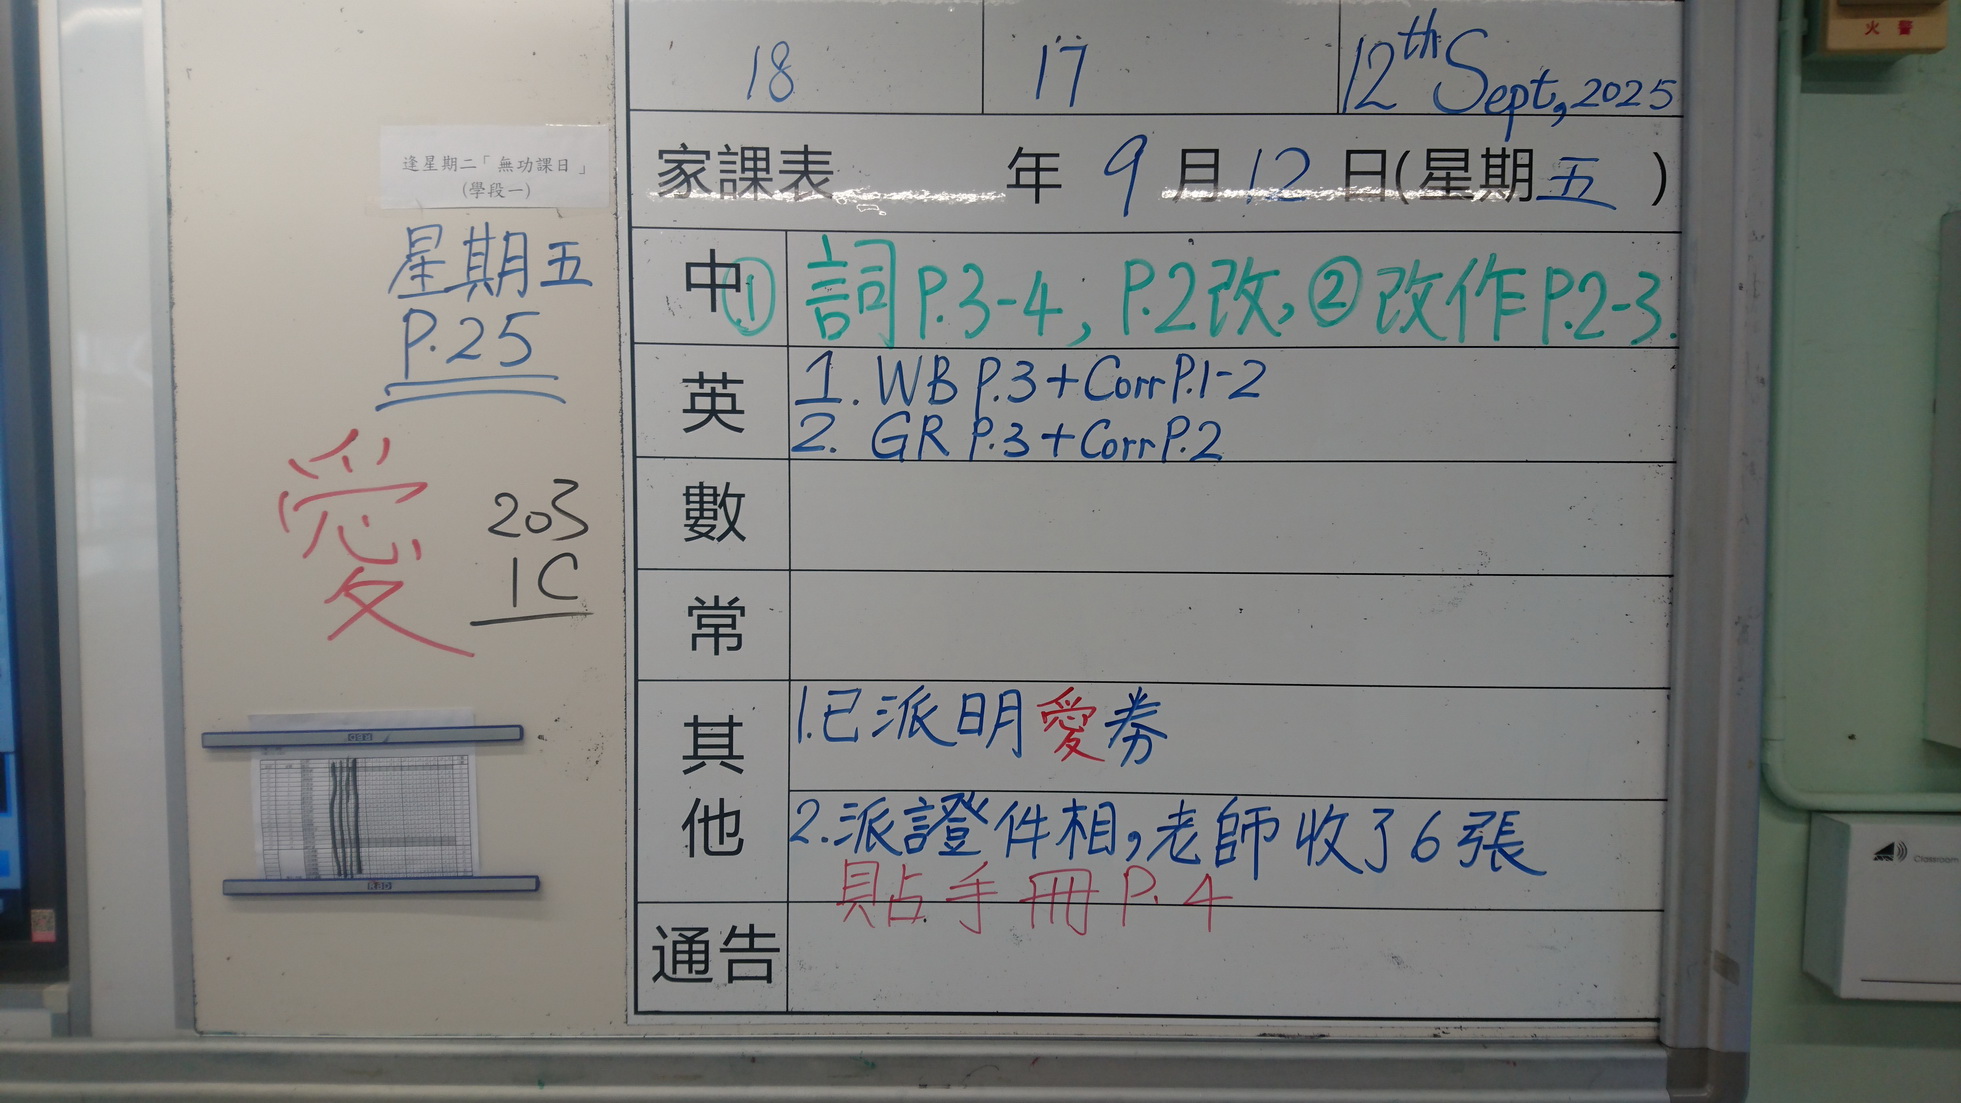 18 17 12th Sept, 2025
家課表 年 9 月 12 日(星期五)
中 ① 詞P.3-4, P.2改, ② 改作P.2-3.
英 1. WB P.3+Corr P.1-2
2. GR P.3+Corr P.2
數
常
其他 1.已派明愛券
2.派證件相,老師收了6張
貼手冊P.4
通告
逢星期二「無功課日」
(學段一)
星期五
P.25
愛
203
1C
火警
Classroom